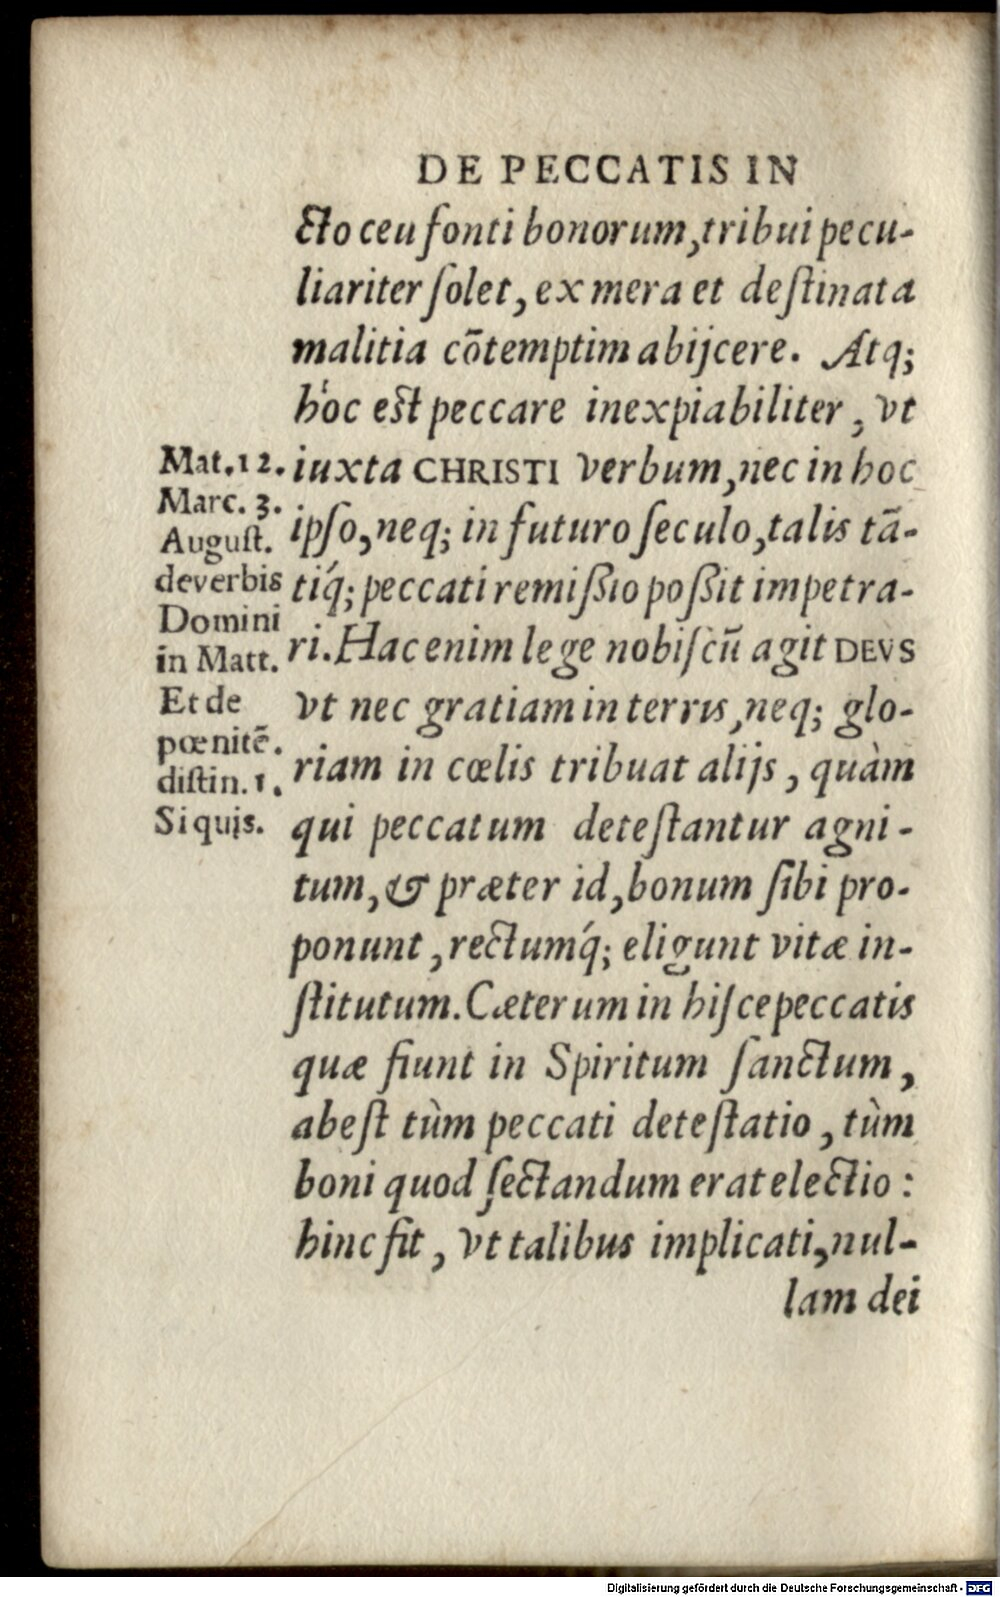 DE PECCATIS IN
cto ceu fonti bonorum, tribui pecu-
liariter ſolet, ex mera et deſtinata
malitia cõtemptim abijcere. Atq;
hoc est peccare inexpiabiliter, vt
iuxta CHRISTI verbum, nec in hoc
ipſo, neq; in futuro ſeculo, talis tã-
tiq́; peccati remiſſio poſſit impetra-
ri. Hac enim lege nobiſcũ agit DEVS
vt nec gratiam in terris, neq; glo-
riam in cœlis tribuat alijs, quàm
qui peccatum deteſtantur agni-
tum, & præter id, bonum ſibi pro-
ponunt, rectumq́; eligunt vitæ in-
ſtitutum. Cæterum in hiſce peccatis
quæ fiunt in Spiritum ſanctum,
abeſt tùm peccati deteſtatio, tùm
boni quod ſectandum erat electio:
hinc fit, vt talibus implicati, nul-
lam dei
Mat. 12.
Marc. 3.
Auguſt.
de verbis
Domini
in Matt.
Et de
pœnitẽ.
diſtin. 1.
Si quis.
Digitalisierung gefördert durch die Deutsche Forschungsgemeinschaft - DFG